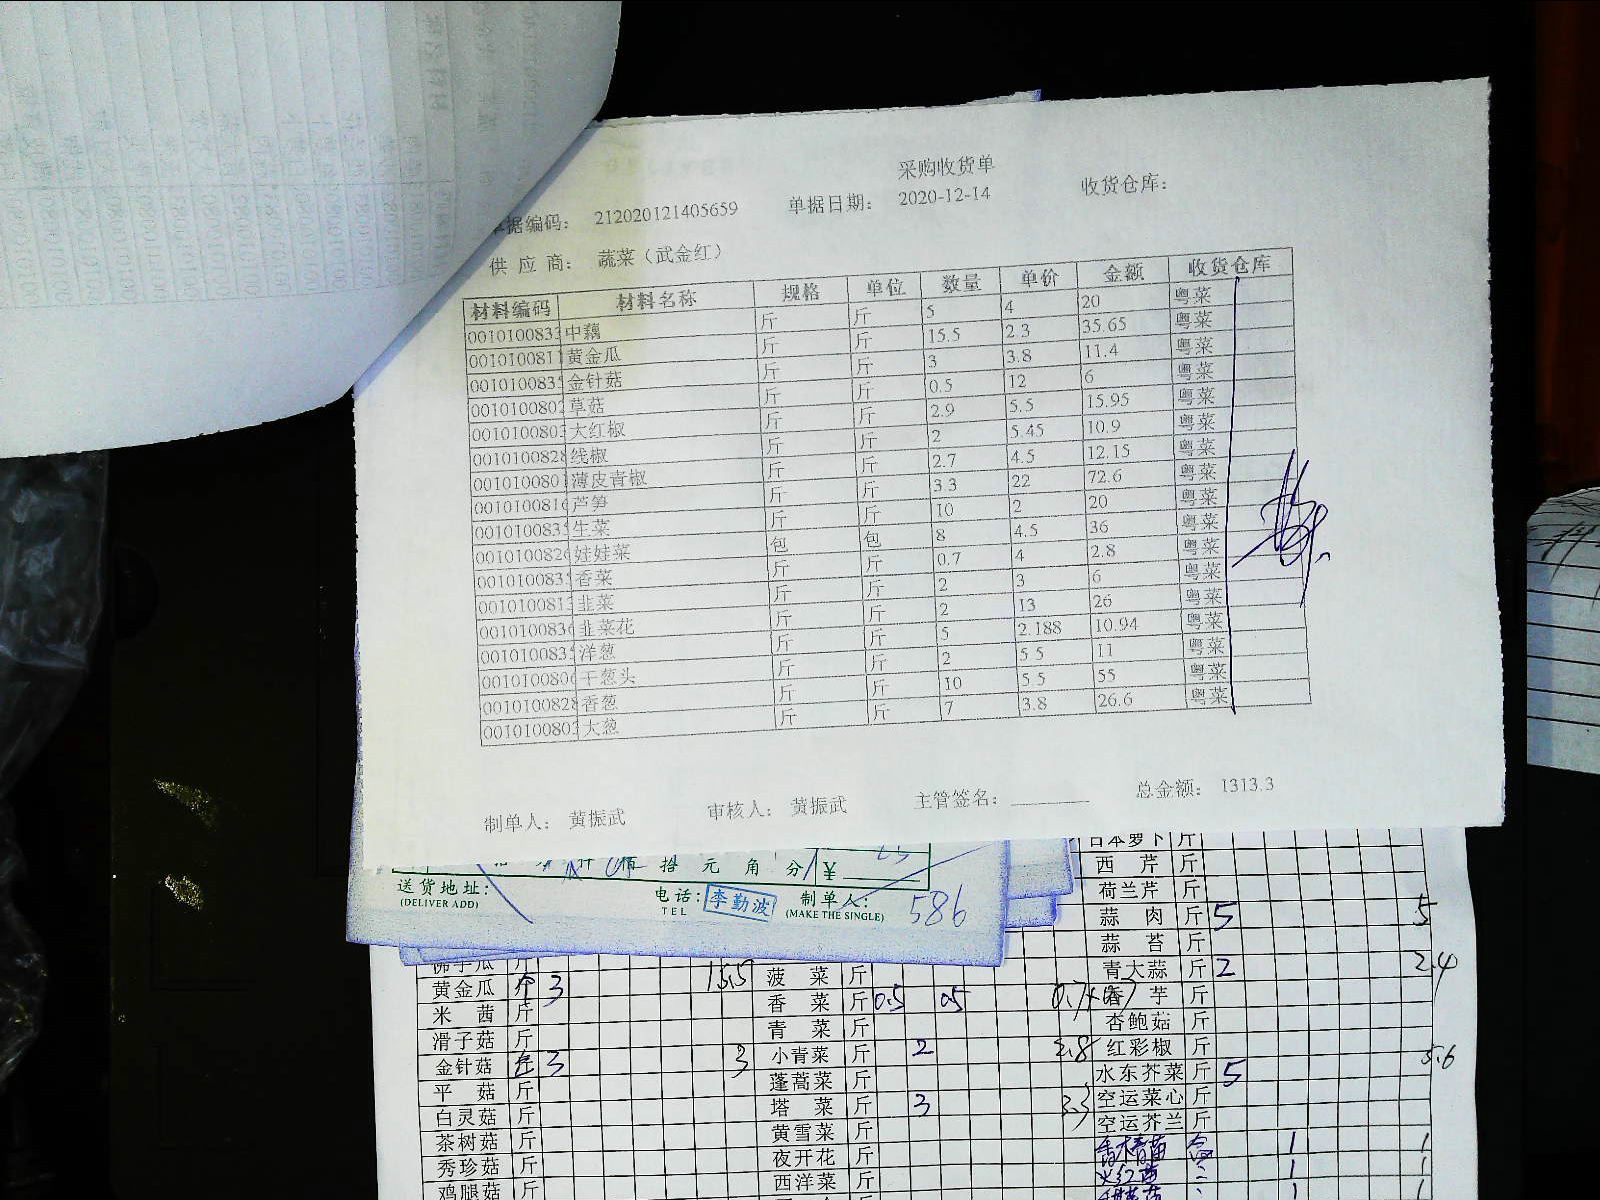 采购收货单
据编码： 212020121405659 单据日期： 2020-12-14 收货仓库：
供应商： 蔬菜（武金红）
材料编码 材料名称 规格 单位 数量 单价 金额 收货仓库
001010083 中藕 斤 斤 5 4 20 粤菜
001010081 黄金瓜 斤 斤 15.5 2.3 35.65 粤菜
001010083 金针菇 斤 斤 3 3.8 11.4 粤菜
001010080 草菇 斤 斤 0.5 12 6 粤菜
001010080 大红椒 斤 斤 2.9 5.5 15.95 粤菜
001010082 线椒 斤 斤 2 5.45 10.9 粤菜
001010080 薄皮青椒 斤 斤 2.7 4.5 12.15 粤菜
001010081 芦笋 斤 斤 3.3 22 72.6 粤菜
001010083 生菜 斤 斤 10 2 20 粤菜
001010082 娃娃菜 包 包 8 4.5 36 粤菜
001010083 香菜 斤 斤 0.7 4 2.8 粤菜
001010081 韭菜 斤 斤 2 3 6 粤菜
001010083 韭菜花 斤 斤 2 13 26 粤菜
001010083 洋葱 斤 斤 5 2.188 10.94 粤菜
001010080 干葱头 斤 斤 2 5.5 11 粤菜
001010082 香葱 斤 斤 10 5.5 55 粤菜
001010080 大葱 斤 斤 7 3.8 26.6 粤菜
制单人： 黄振武 审核人： 黄振武 主管签名： 总金额： 1313.3
佰 拾 元 角 分 ¥
送货地址：
(DELIVER ADD)
电话：
TEL
李勤波
制单人：
(MAKE THE SINGLE)
586
日本萝卜 斤
西芹 斤
荷兰芹 斤
蒜肉 斤 5 5
蒜苔 斤
佛手瓜 斤 菠菜 斤 青大蒜 斤 2 2.4
黄金瓜 斤 3 15.5 香菜 斤 0.5 0.5 香芋 斤
米茜 斤 青菜 斤 杏鲍菇 斤
滑子菇 斤 小青菜 斤 2 2.8 红彩椒 斤 5.6
金针菇 3 3 蓬蒿菜 斤 水东芥菜 斤 5
平菇 斤 塔菜 斤 3 3.3 空运菜心 斤
白灵菇 斤 黄雪菜 斤 空运芥兰 斤
茶树菇 斤 夜开花 斤 1 1
秀珍菇 斤 西洋菜 斤 1 1
鸡腿菇 斤 1 1